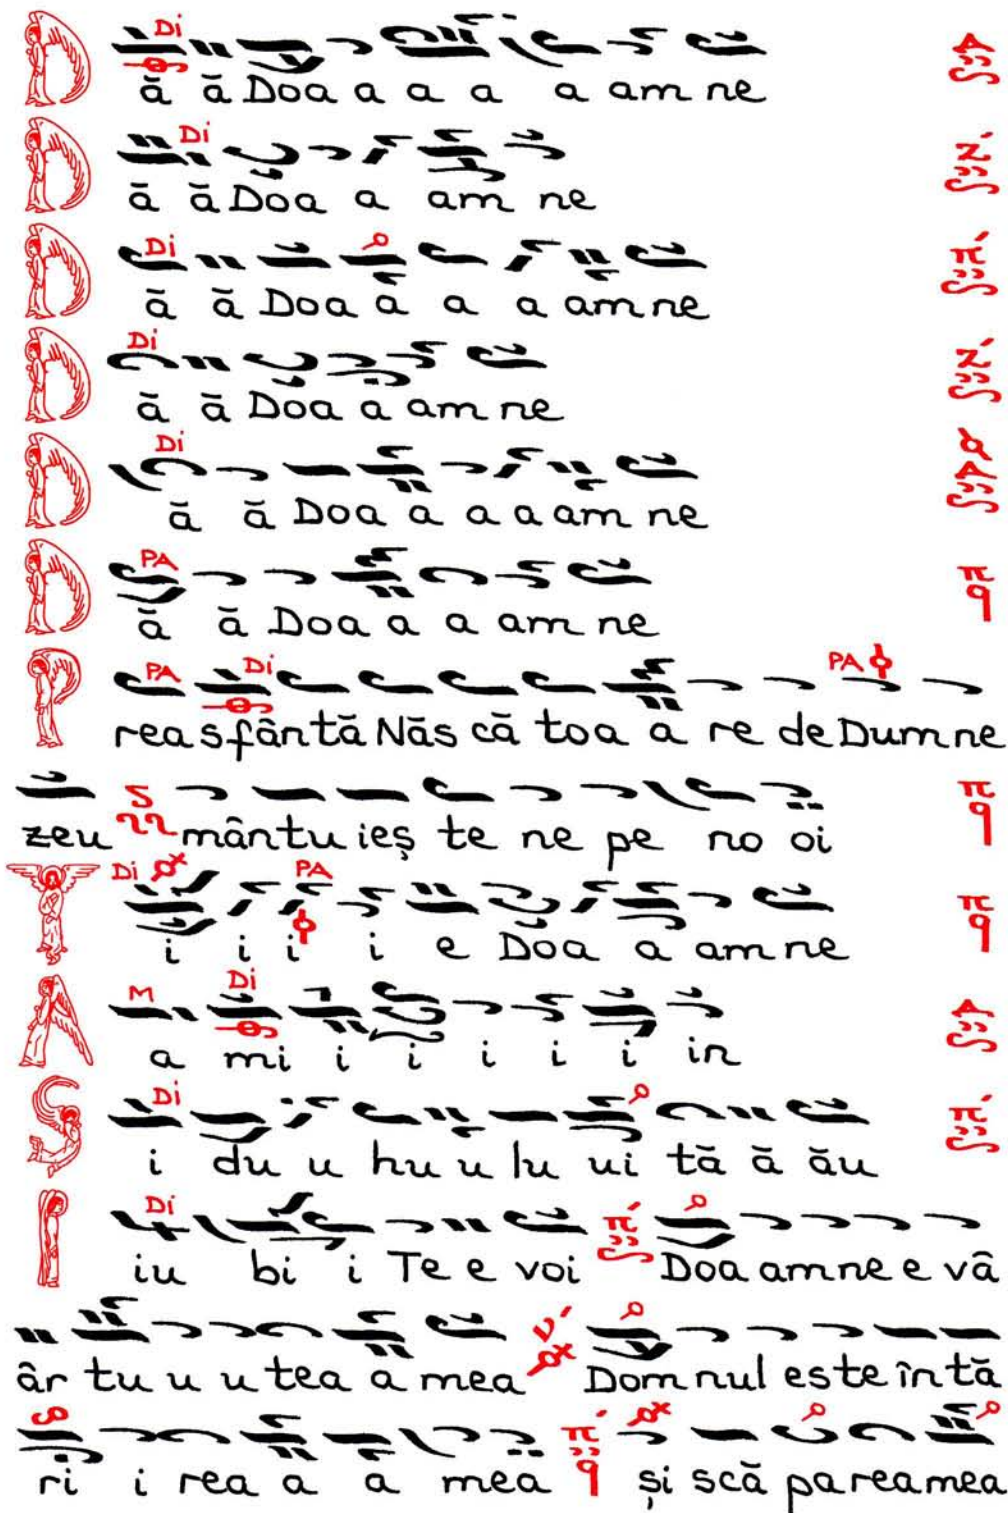 D Di ă ă Doa a a a a am ne
D Di ă ă Doa a am ne
D Di ă ă Doa a a a am ne
D Di ă ă Doa a am ne
D Di ă ă Doa a a a am ne
D PA ă ă Doa a a am ne π q
P PA Di PA rea sfân tă Năs că toa a re de Dum ne
zeu mân tu ieș te ne pe no oi π q
T Di PA i i i i e Doa a am ne π q
A M Di a mi i i i i i in
S Di i du u hu u lu ui tă ă ău
I Di iu bi i Te e voi Doa am ne e vâ
âr tu u u tea a mea Dom nul es te în tă
ri i rea a a mea π q și scă pa rea mea